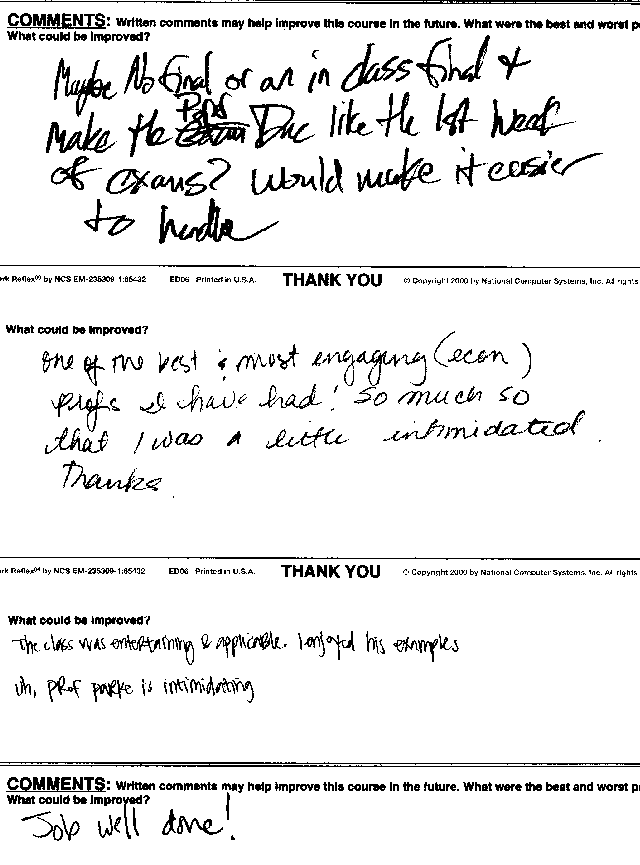 COMMENTS: Written comments may help improve this course in the future. What were the best and worst p
What could be improved?
Maybe No final or an in class final +
Prof
Make the Due like the 1st week
of exams? Would make it easier
to handle
rk Reflex® by NCS EM-235309-1:65432 ED06 Printed in U.S.A. THANK YOU © Copyright 2000 by National Computer Systems, Inc. All rights
What could be improved?
One of the best & most engaging (econ)
profs I have had! So much so
that I was a little intimidated.
Thanks.
rk Reflex® by NCS EM-235309-1:65432 ED06 Printed in U.S.A. THANK YOU © Copyright 2000 by National Computer Systems, Inc. All rights
What could be improved?
The class was entertaining & applicable. I enjoyed his examples
Uh, Prof Parke is intimidating
COMMENTS: Written comments may help improve this course in the future. What were the best and worst p
What could be improved?
Job well done!